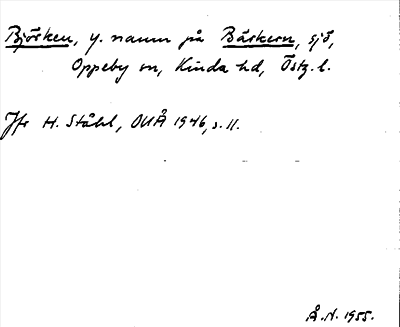 Björken, y. namn på Bärkern, sjö,
Oppeby sn, Kinda hd, Östg. l.
Jfr H. Ståhl, OUÅ 1946, s. 11.
Å. N. 1955.